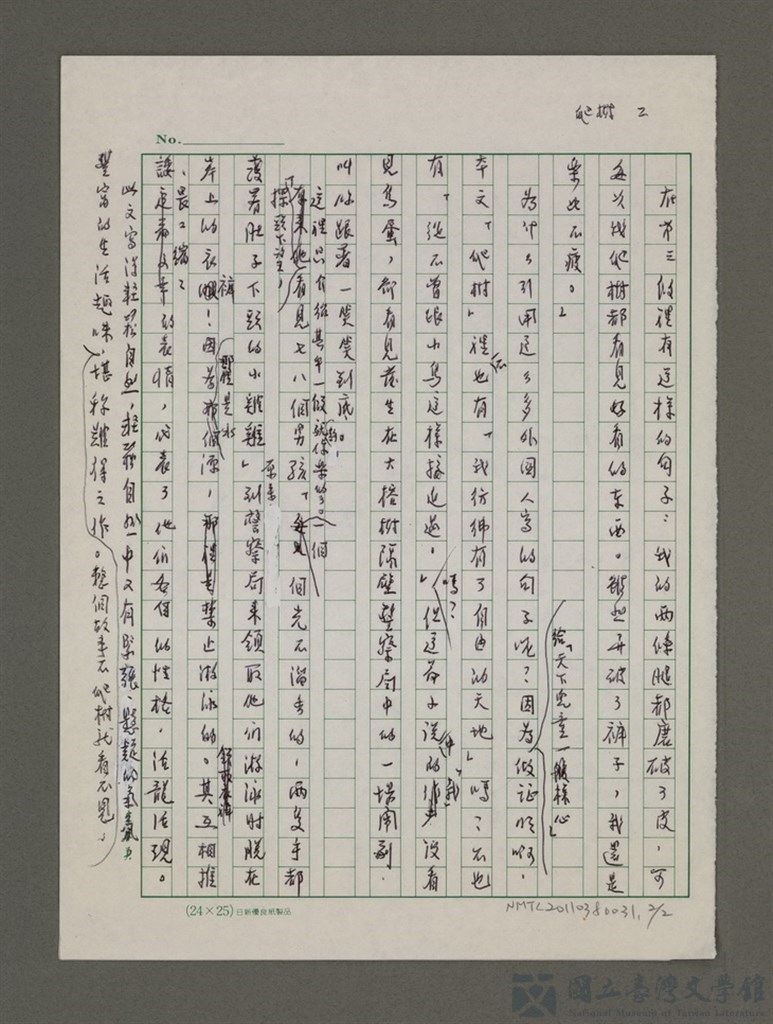 爬樹 2
No.
在第三段裡有這樣的句子：我的兩條腿都磨破了皮，可
每次我爬樹都看見好看的東西。雖然弄破了褲子，我還是
樂此不疲。」
為什麼引用這麼多外國人寫的句子呢？因為
給「天下兒童一般樣心」
做証明啊，
本文「爬樹」裡也有「我彷彿有了自由的天地」嗎？不也
有「從不曾跟小鳥這樣接近過。」嗎？但這篇小說的
中「我」沒看
見鳥蛋，卻看見發生在大榕樹隔壁警察局中的一場鬧劇，
叫你跟著一齣笑到底。
這裡只介紹其中一段
看見七八個男孩「個個光不溜秋的，兩隻手都
探頭下望，
護著肚子下頭的小雞雞」到警察局來領取他們游泳時脫在
岸上的衣褲！因為那裡是水源，那裡是禁止游泳的。其互相推
諉、畏畏縮縮的表情，明表了他們各個的性格，活龍活現。
此文寫得輕鬆自然，輕鬆自然中又有緊張、懸疑的氣氛與
豐富的生活趣味，堪稱難得之作。整個故事不爬樹就看不見。
(24×25)日新優良紙製品
NMTL20110380031, 2/2
國立臺灣文學館
National Museum of Taiwan Literature